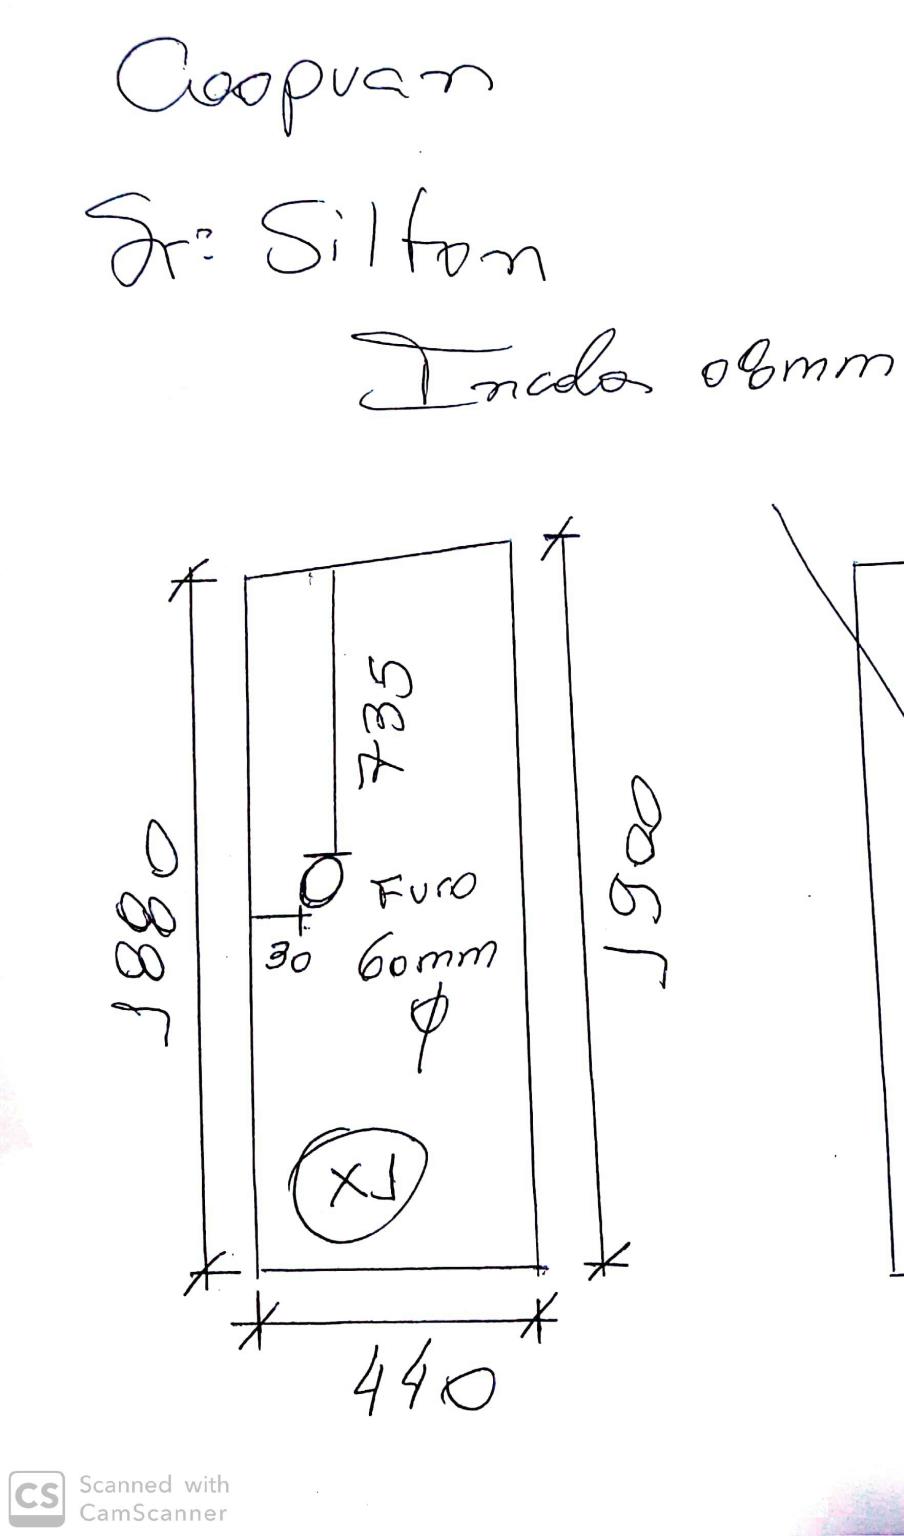 Coopvan
Sr: Silton
Incolor 08mm
735
1880
1900
Furo
30 60mm
φ
X1
440
CS Scanned with
CamScanner